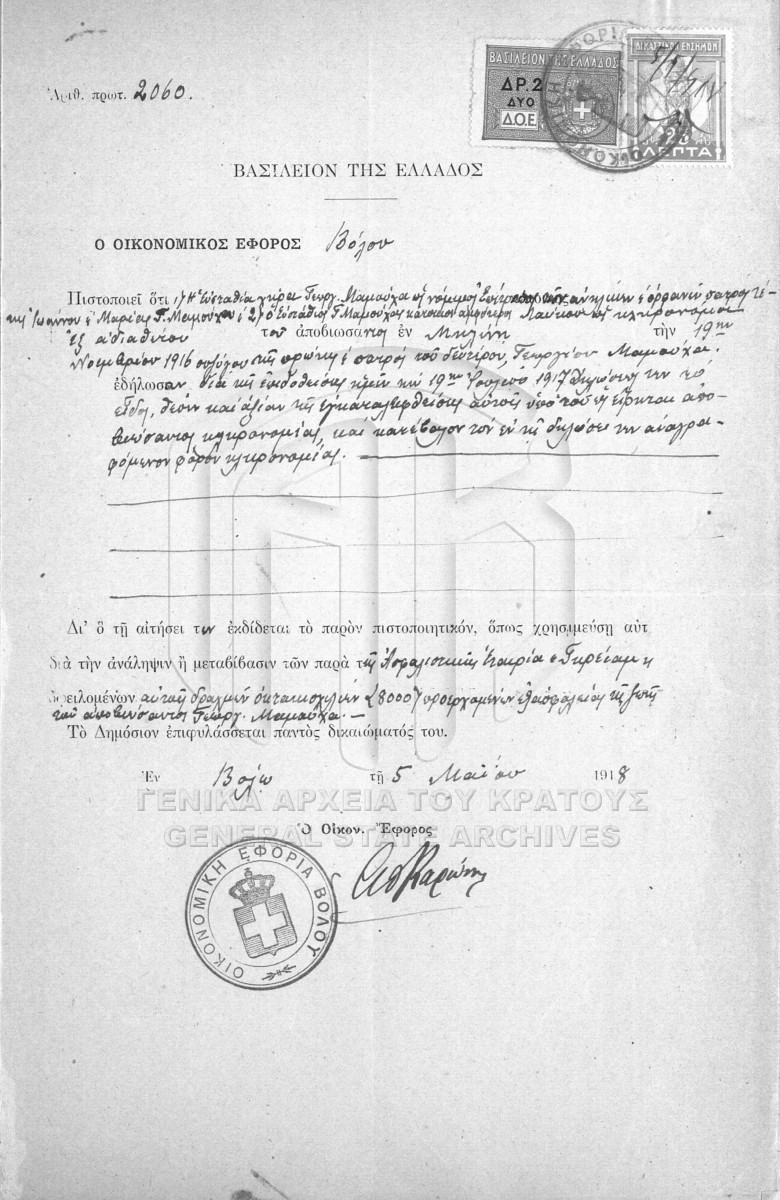 Ἀριθ. πρωτ. 2060.
ΒΑΣΙΛΕΙΟΝ ΤΗΣ ΕΛΛΑΔΟΣ
ΔΡ. 2
ΔΥΟ
Δ.Ο.Ε.
ΔΙΚΑΣΤΙΚΟΝ ΕΝΣΗΜΟΝ
ΛΕΠΤΑ
ΒΑΣΙΛΕΙΟΝ ΤΗΣ ΕΛΛΑΔΟΣ
Ο ΟΙΚΟΝΟΜΙΚΟΣ ΕΦΟΡΟΣ Βόλου
Πιστοποιεῖ ὅτι 1) Ἡ Εὐσταθία χήρα Γεωργ. Μαμούχα ὡς νόμιμος ἐπίτροπος τῶν ἀνηλίκων ὀρφανῶν πατρὸς τέ-
κνων Ἰωάννου & Μαρίας Γ. Μαμούχα & 2) ὁ Εὐστάθιος Γ. Μαμούχας κάτοικοι ἀμφότεροι Λαύκου ὡς κληρονόμοι
ἐξ ἀδιαθέτου τοῦ ἀποβιώσαντος ἐν Μηλίνῃ τὴν 19ην
Νοεμβρίου 1916 συζύγου τῆς πρώτης & πατρὸς τοῦ δευτέρου, Γεωργίου Μαμούχα.
ἐδήλωσαν διὰ τῆς ἐπιδοθείσης ἡμῖν τὴν 19ην Ἰουλίου 1917 δηλώσεώς των τὸ
εἶδος, θέσιν καὶ ἀξίαν τῆς ἐγκαταλειφθείσης αὐτοῖς ὑπὸ τοῦ εἰρημένου ἀπο-
βιώσαντος κληρονομίας, καὶ κατέβαλον τὸν ἐν τῇ δηλώσει των ἀναγρα-
φόμενον φόρον κληρονομίας.
Δι' ὃ τῇ αἰτήσει των ἐκδίδεται τὸ παρὸν πιστοποιητικόν, ὅπως χρησιμεύσῃ αὐτ
διὰ τὴν ἀνάληψιν ἢ μεταβίβασιν τῶν παρὰ τῆς Ἀσφαλιστικῆς Ἑταιρία
ὀφειλομένων αὐτοῖς δραχμῶν ὀκτακισχιλίων (8000) προερχομένων ἐξ ἀσφαλείας τῆς ζωῆς
τοῦ ἀποβιώσαντος Γεωργ. Μαμούχα.
Τὸ Δημόσιον ἐπιφυλάσσεται παντὸς δικαιώματός του.
Ἐν Βόλῳ τῇ 5 Μαΐου 1918
ΓΕΝΙΚΑ ΑΡΧΕΙΑ ΤΟΥ ΚΡΑΤΟΥΣ
GENERAL STATE ARCHIVES
Ὁ Οἰκον. Ἔφορος
ΟΙΚΟΝΟΜΙΚΗ ΕΦΟΡΙΑ ΒΟΛΟΥ